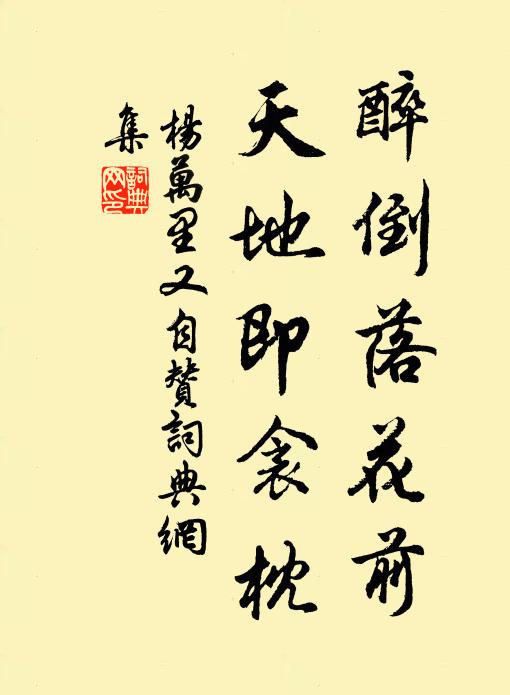 醉倒落花前
天地即衾枕
楊萬里又自贊詞典網
集
詞典
网印